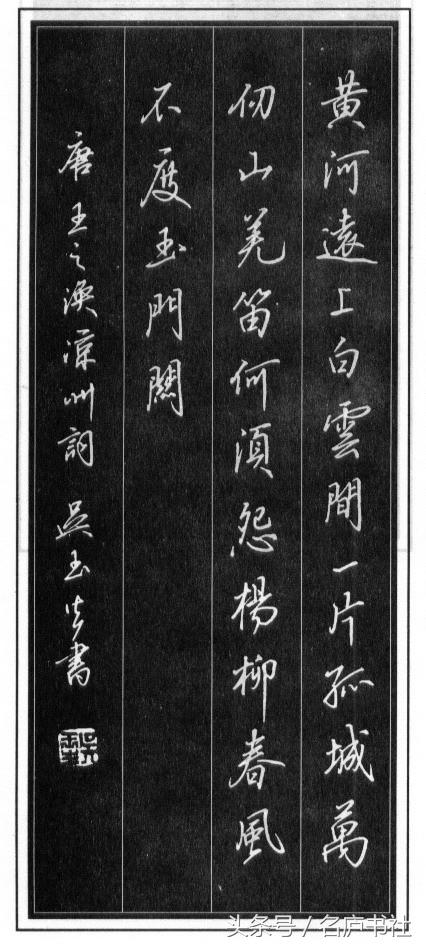 黃河遠上白雲間一片孤城萬
仞山羌笛何須怨楊柳春風
不度玉門關
唐王之渙涼州詞 吳玉生書
头条号 / 名庐书社